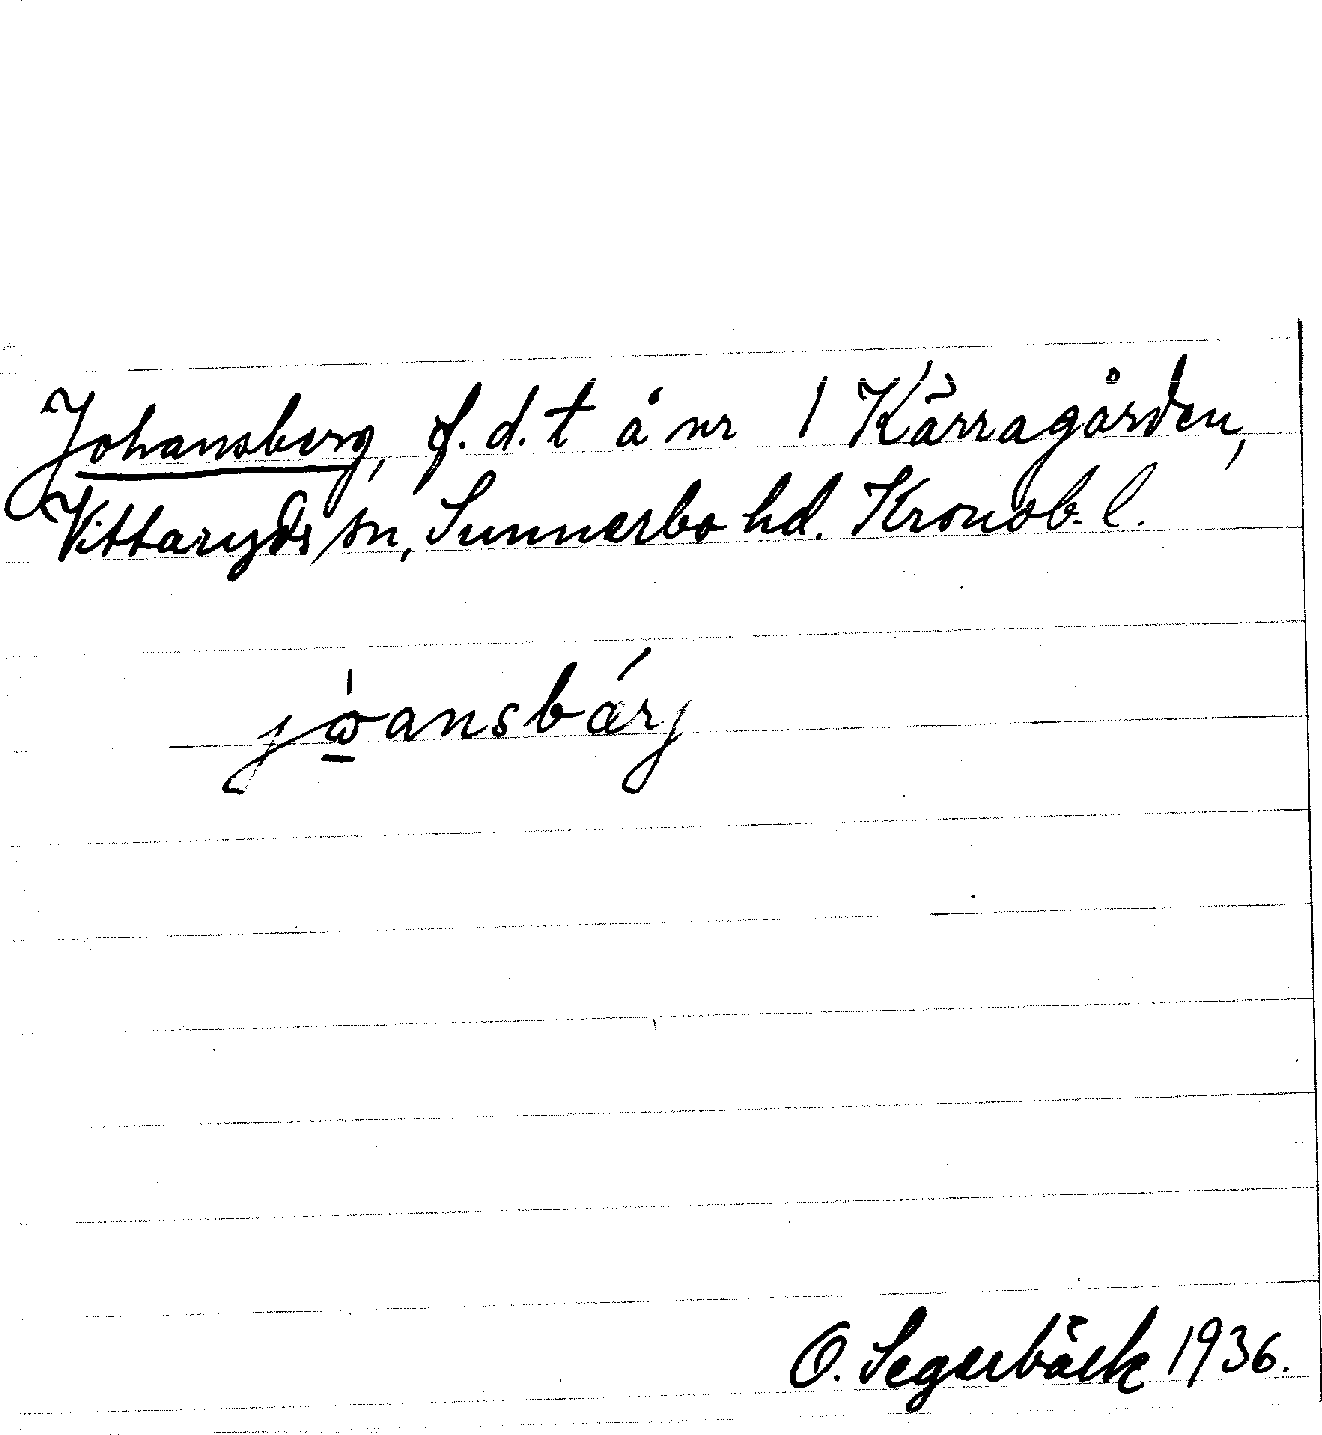 Johansberg, f.d.t å nr 1 Kärragården,
Vittaryds sn, Sunnerbo hd. Kronob. l.
jὼ̲ansbǽrj
O. Segerbäck 1936.